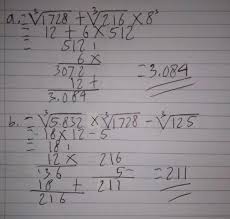 a. = ³√1728 + ³√216 × 8³
= 12 + 6 × 512
= 512
6 ×
3072
12 +
3.084
= 3.084
b. = ³√5.832 × ³√1728 - ³√125
= 18 × 12 - 5
= 18
12 × 216
36 5 -
18 + 211
216
= 211